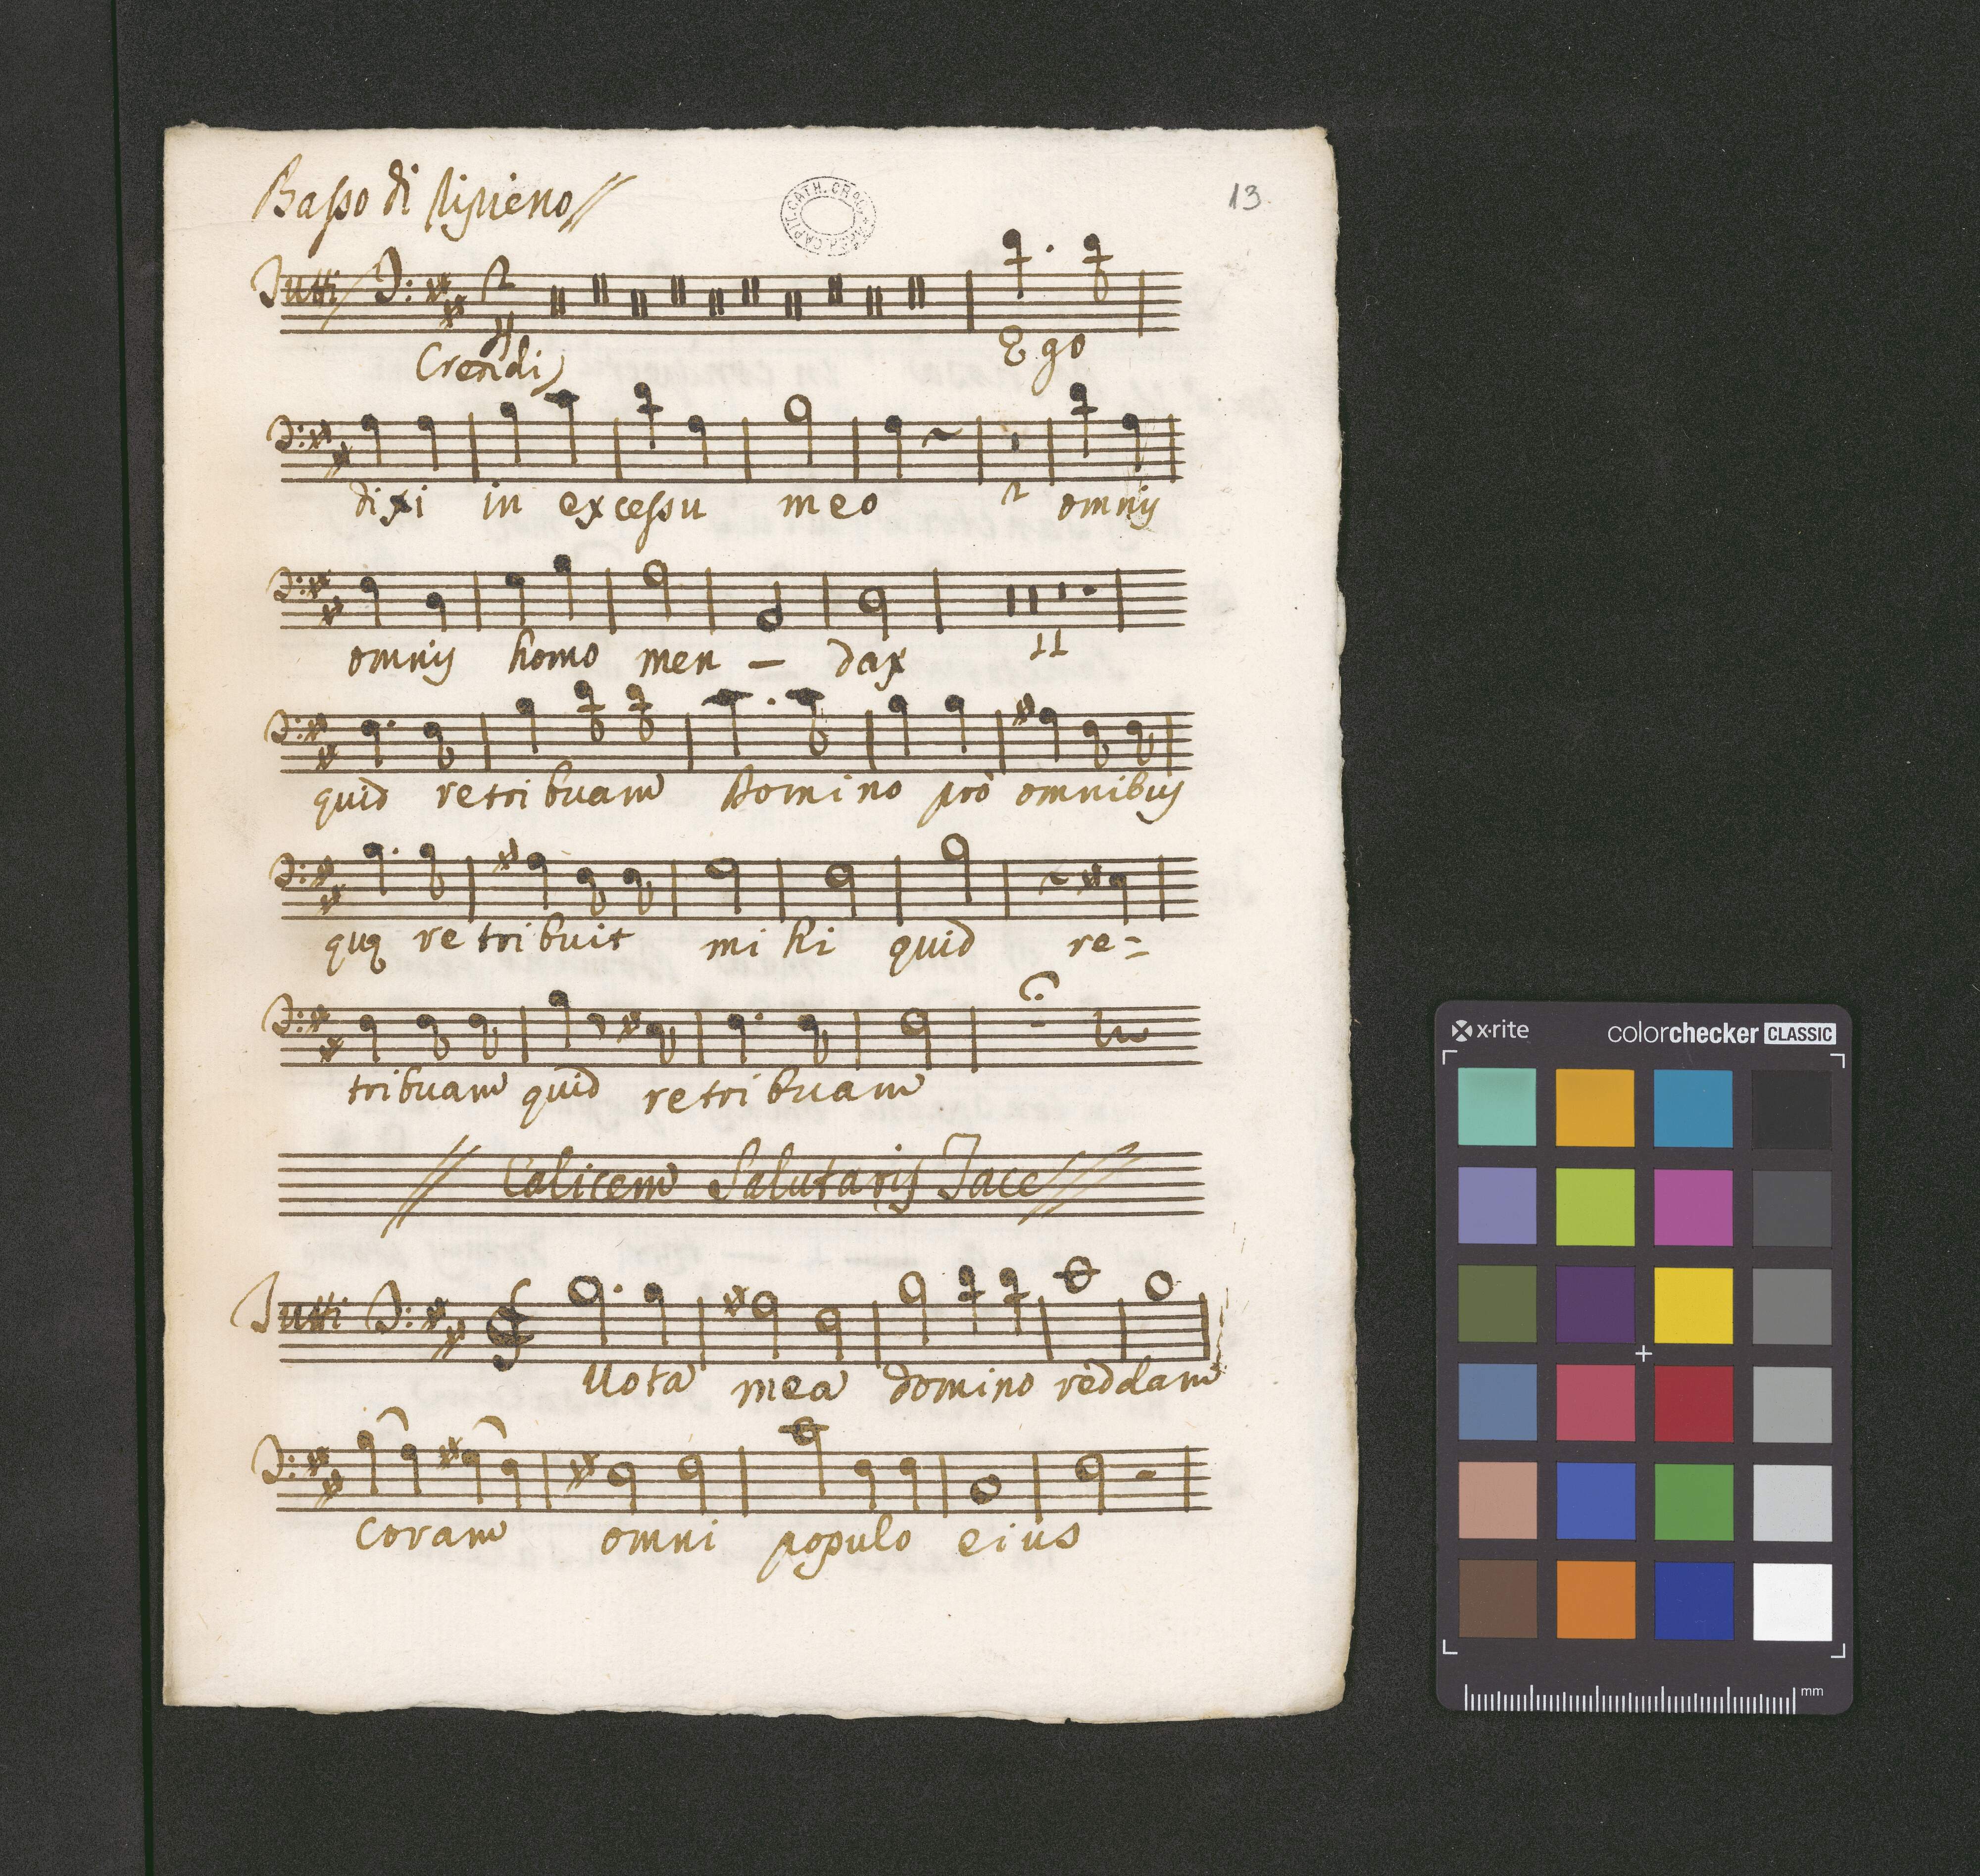 Basso di Ripieno
13
Tutti
Credidi
Ego
dixi in excessu meo 2 omnis
omnis homo men - dax 11
quid retribuam Domino pro omnibus
que retribuit mihi quid re=
tribuam quid retribuam
Calicem Salutaris Tace
Tutti
Vota mea domino reddam
coram omni populo eius
x·rite
colorchecker CLASSIC
mm